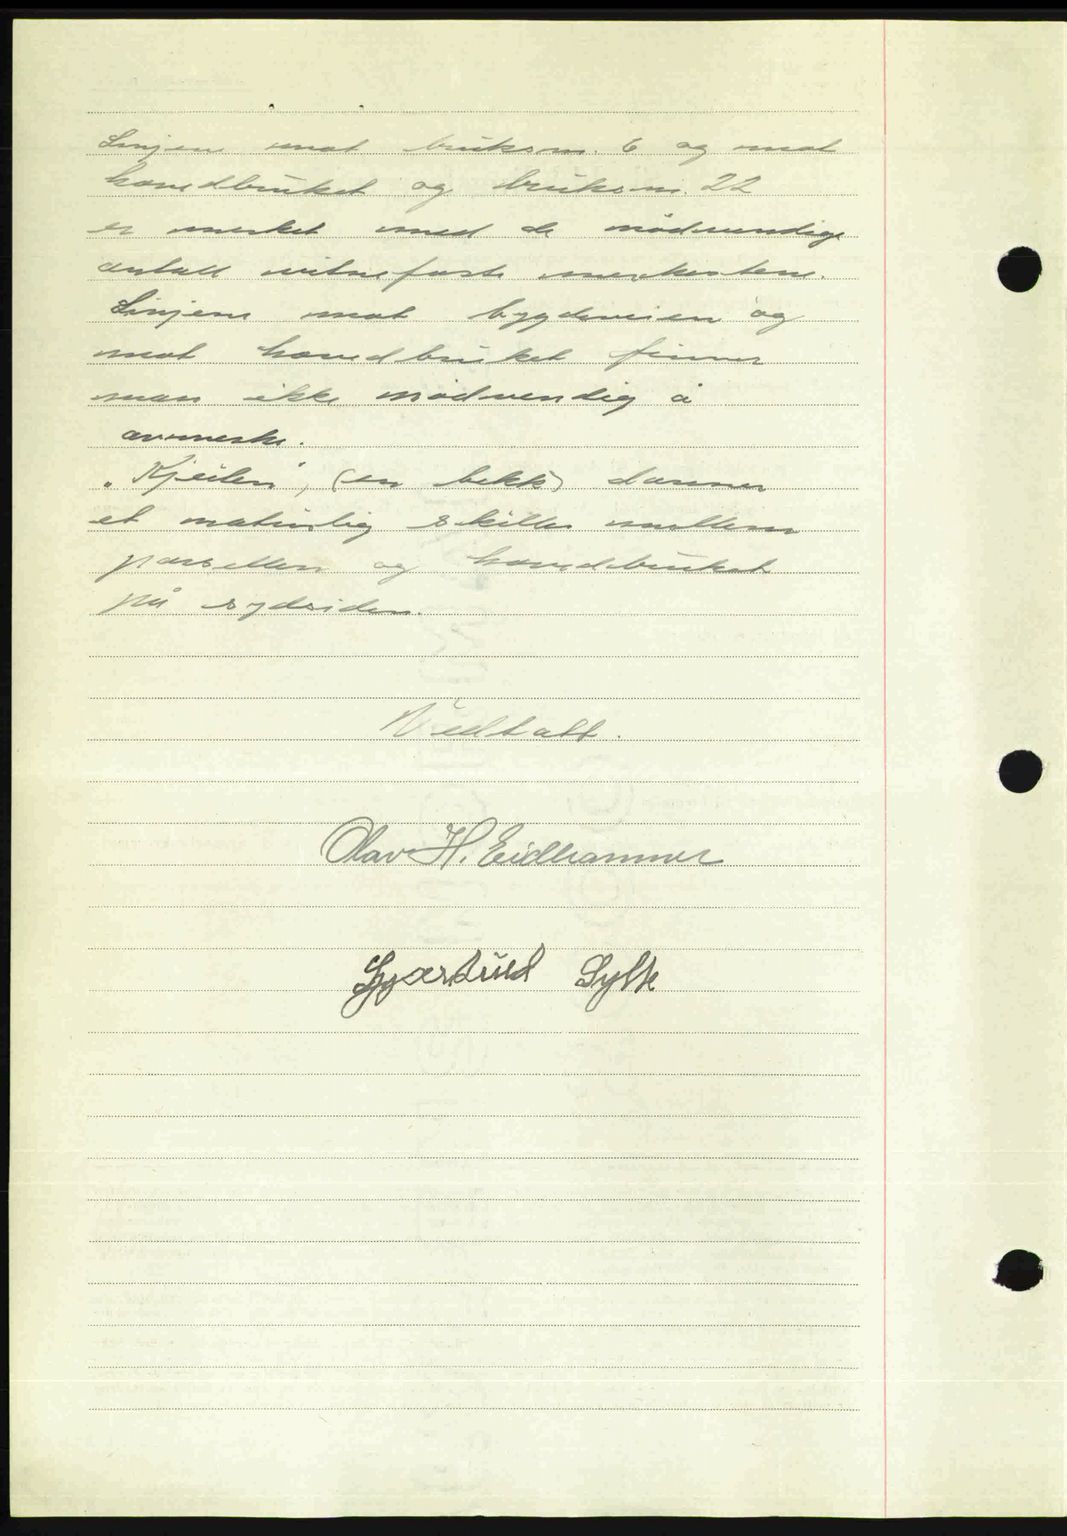 Linjene mot bruksnr. 6 og mot
hovedbruket og bruksnr. 22
er merket med de nødvendige
antall vitnefaste merkestene.
Linjene mot bygdeveien og
mot hovedbruket finner
man ikke nødvendig å
avmerke.
„Kjeilen", (en bekk) danner
et naturlig skille mellem
parsellen og hovedbruket
på sydsiden.
Vedtatt.
Olav H. Eidhammer
Sylte